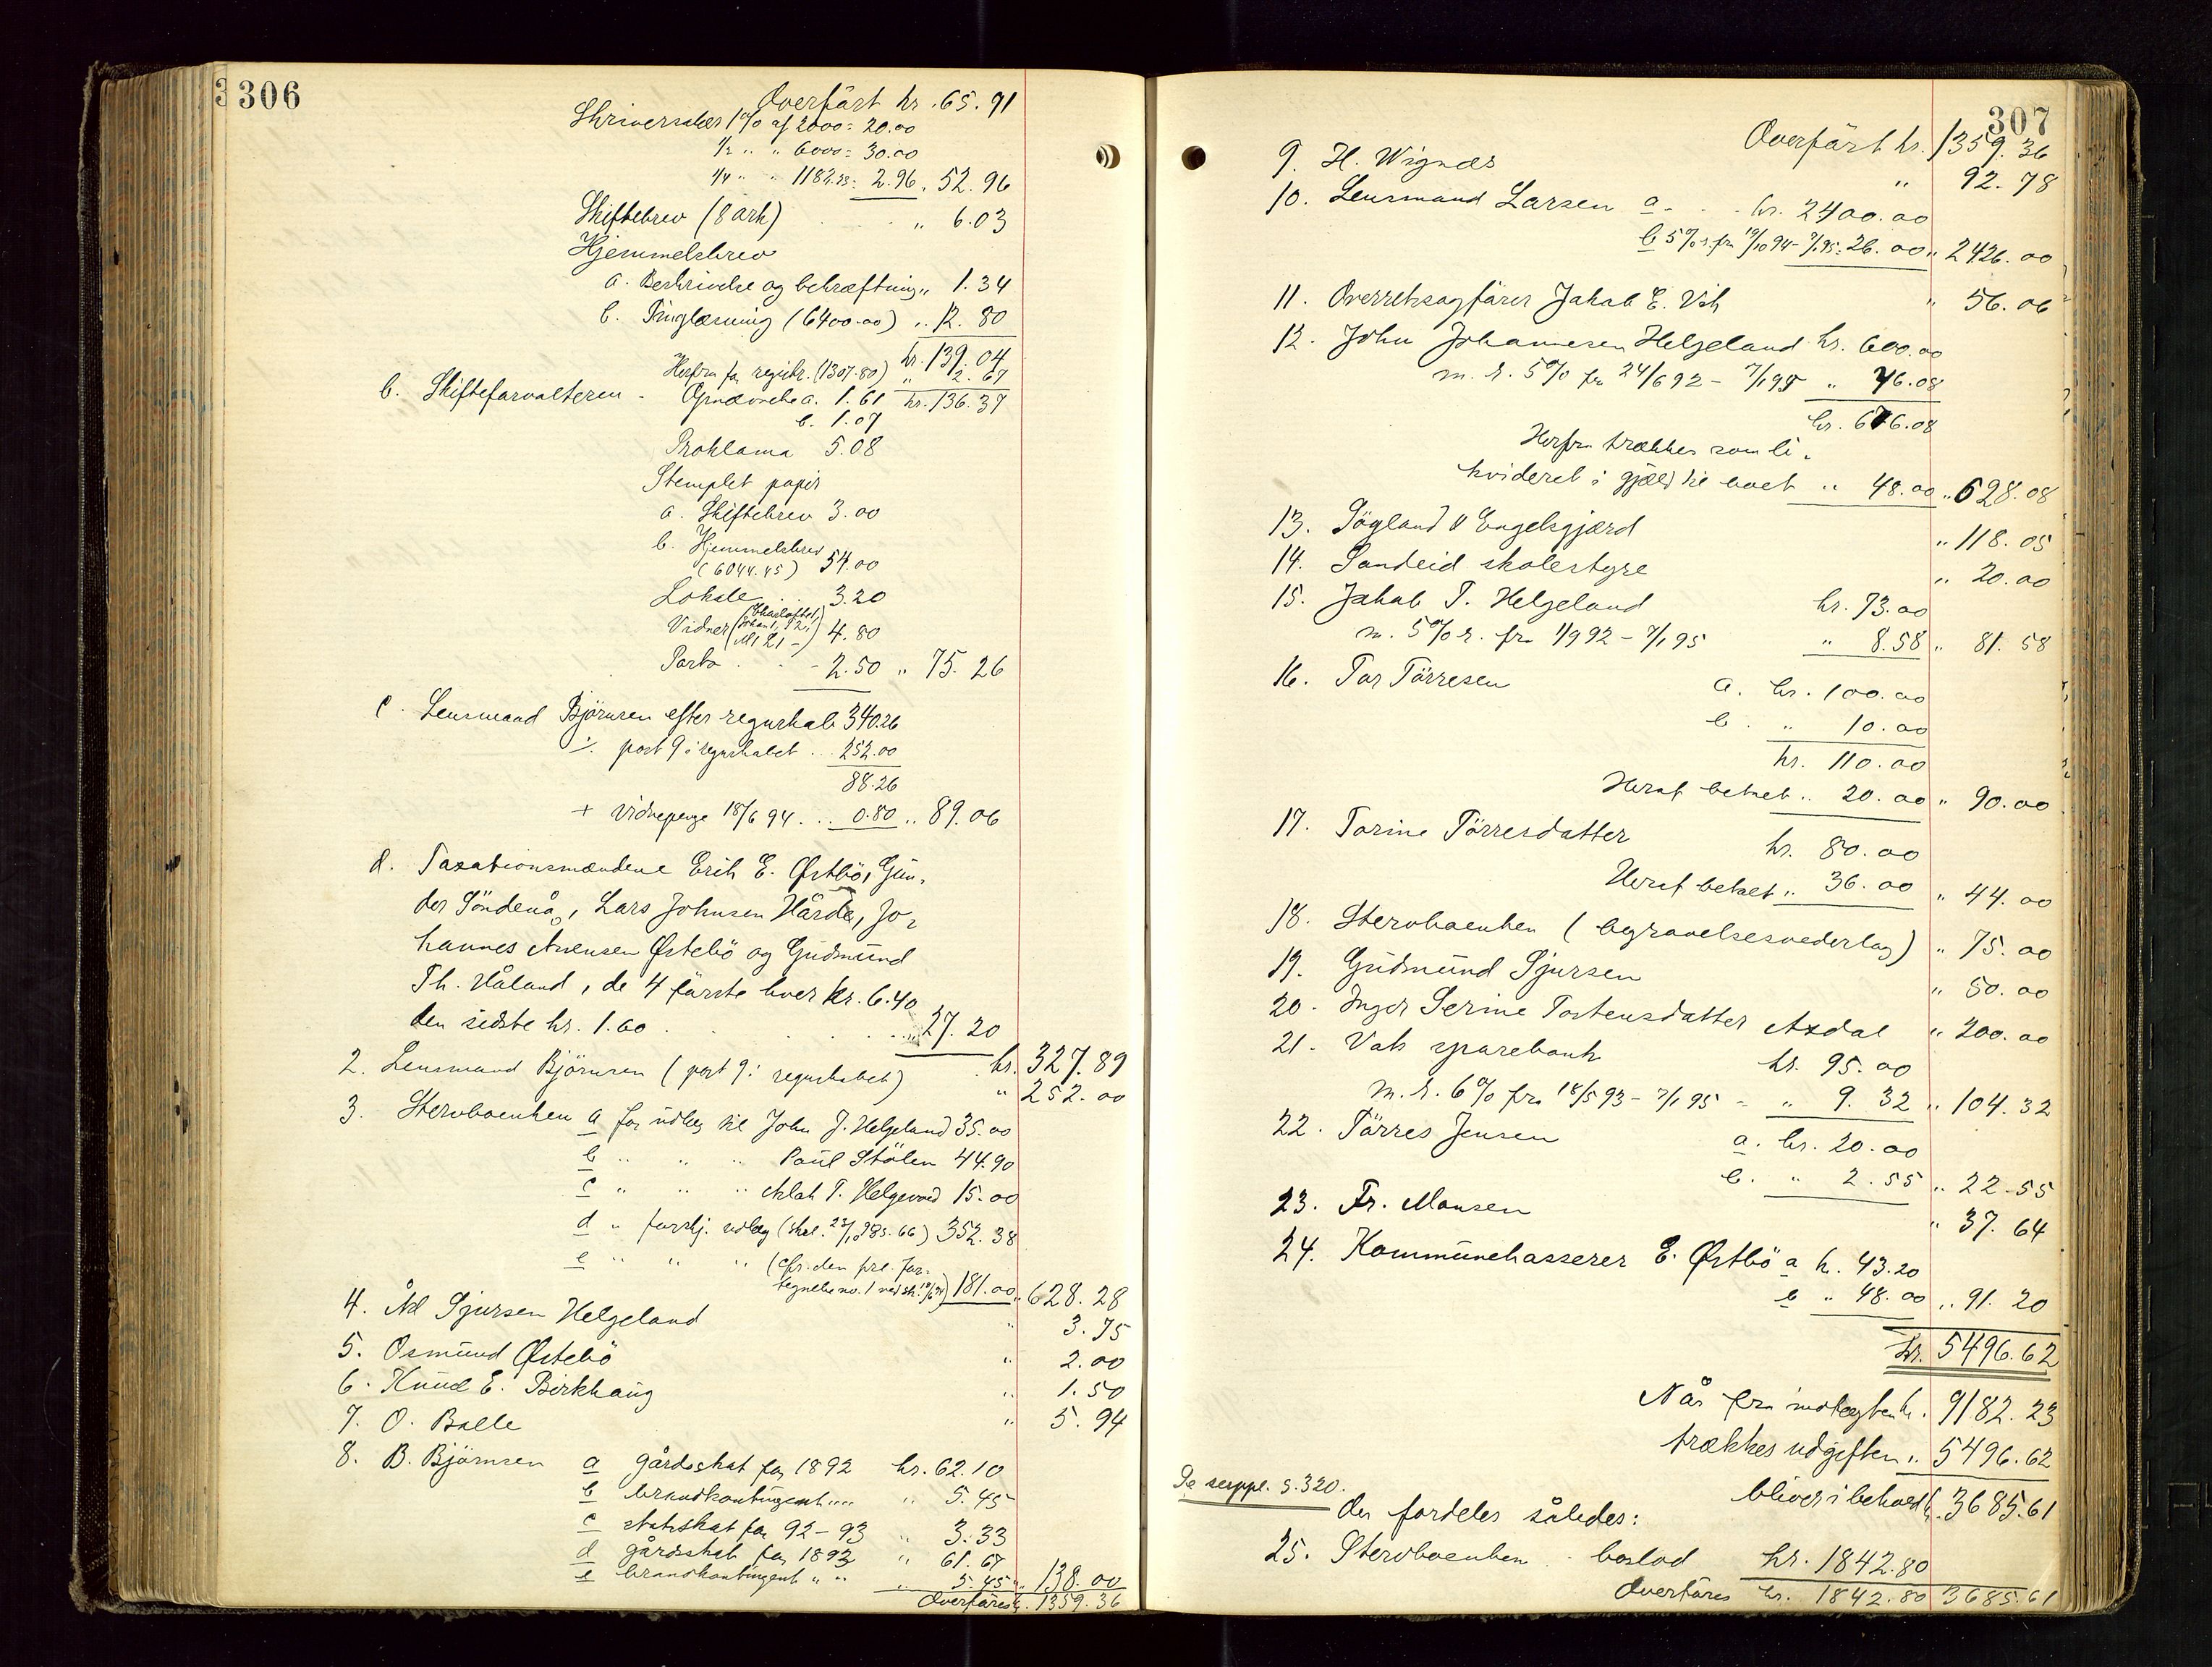 306
Overført kr. 65.91
Skriversalær 1% af 2000 = 20.00
1/2 " " 6000 = 30.00
1/4 " " 1182.23 = 2.96 " 52.96
Skiftebrev (8 ark) " 6.03
Hjemmelsbrev
a. Beskrivelse og bekræftning " 1.34
b. Tinglæsning (6400.00) " 12.80
kr. 139.04
Herfra for registr. (1307.80) " 2.67
b. Skifteforvalteren - Opnævnelse a. 1.61 kr. 136.37
b. 1.07
Proklama 5.08
Stemplet papir
a. Skiftebrev 3.00
b. Hjemmelsbrev
(6044.45) 54.00
Lokale 3.20
Vidner 4.80
Porto 2.50 " 75.26
c. Lensmand Björnsen efter regnskab 340.26
÷ post 9 i regnskabet 252.00
88.26
+ vidnepenge 18/6 94 0.80 " 89.06
d. Taxationsmændene Erik E. Østbö, Gun-
der Söndenå, Lars Johnsen Hårda, Jo-
hannes Anensen Østebö og Gudmund
Th. Håland, de 4 første hver kr. 6.40
den sidste kr. 1.60 " 27.20
kr. 327.89
2. Lensmand Björnsen (post 9 i regnskabet) " 252.00
3. Stervboenken a for udlæg til John J. Helgeland 35.00
b " " " Paul Stölen 44.90
c " " " Aslak T. Helgevold 15.00
d " forskj. udlæg (skal. 23/10 93 s. 66) 352.38
e " " " (cfr. den præ. for-
tegnelse no. 1 ved sk. 18/6 94) 181.00 " 628.28
4. Åd Sjursen Helgeland " 3.75
5. Osmund Østebö " 2.00
6. Knud E. Birkhaug " 1.50
7. O. Balle " 5.94
8. B. Björnsen a gårdsskat for 1892 kr. 62.10
b brandkontingent " " " 5.45
c statsskat for 92-93 " 3.33
d gårdsskat for 1893 " 61.67
e brandkontingent " " " 5.45 " 138.00
Overføres kr. 1359.36
307
Overført kr. 1359.36
9. H. Wignæs " 92.78
10. Lensmand Larsen a. kr. 2400.00
b 5% r. fra 19/10 94 - 7/1 95 = 26.00 " 2426.00
11. Overretssagfører Jakob E. Vik " 56.06
12. John Johannesen Helgeland kr. 600.00
m. r. 5% fra 24/6 92 - 7/1 95 " 76.08
kr. 676.08
Herfra trækkes som li-
kvideret i gjæld til boet " 48.00 " 628.08
13. Tögland & Engelsgjærd " 118.05
14. Sandeid skolestyre " 20.00
15. Jakob T. Helgeland kr. 73.00
m. 5% r. fra 1/9 92 - 7/1 95 " 8.58 " 81.58
16. Tor Tørresen a. kr. 100.00
b. " 10.00
kr. 110.00
Heraf betalt " 20.00 " 90.00
17. Torine Tørresdatter kr. 80.00
Heraf betalt " 36.00 " 44.00
18. Stervboenken (begravelsesvederlag) " 75.00
19. Gudmund Sjursen " 50.00
20. Inger Serine Tostensdatter Axdal " 200.00
21. Vats sparebank kr. 95.00
m. r. 6% fra 18/5 93 - 7/1 95 - " 9.32 " 104.32
22. Tørres Jensen a. kr. 20.00
b. " 2.55 " 22.55
23. Fr. Monsen " 37.64
24. Kommunekasserer E. Østbö a kr. 43.20
b " 48.00 " 91.20
kr. 5496.62
Når fra indtægten kr. 9182.23
trækkes udgiften " 5496.62
bliver i behold kr. 3685.61
Se suppl. s. 320.
der fordeles således:
25. Stervboenken boslod kr. 1842.80
Overføres kr. 1842.80 3685.61